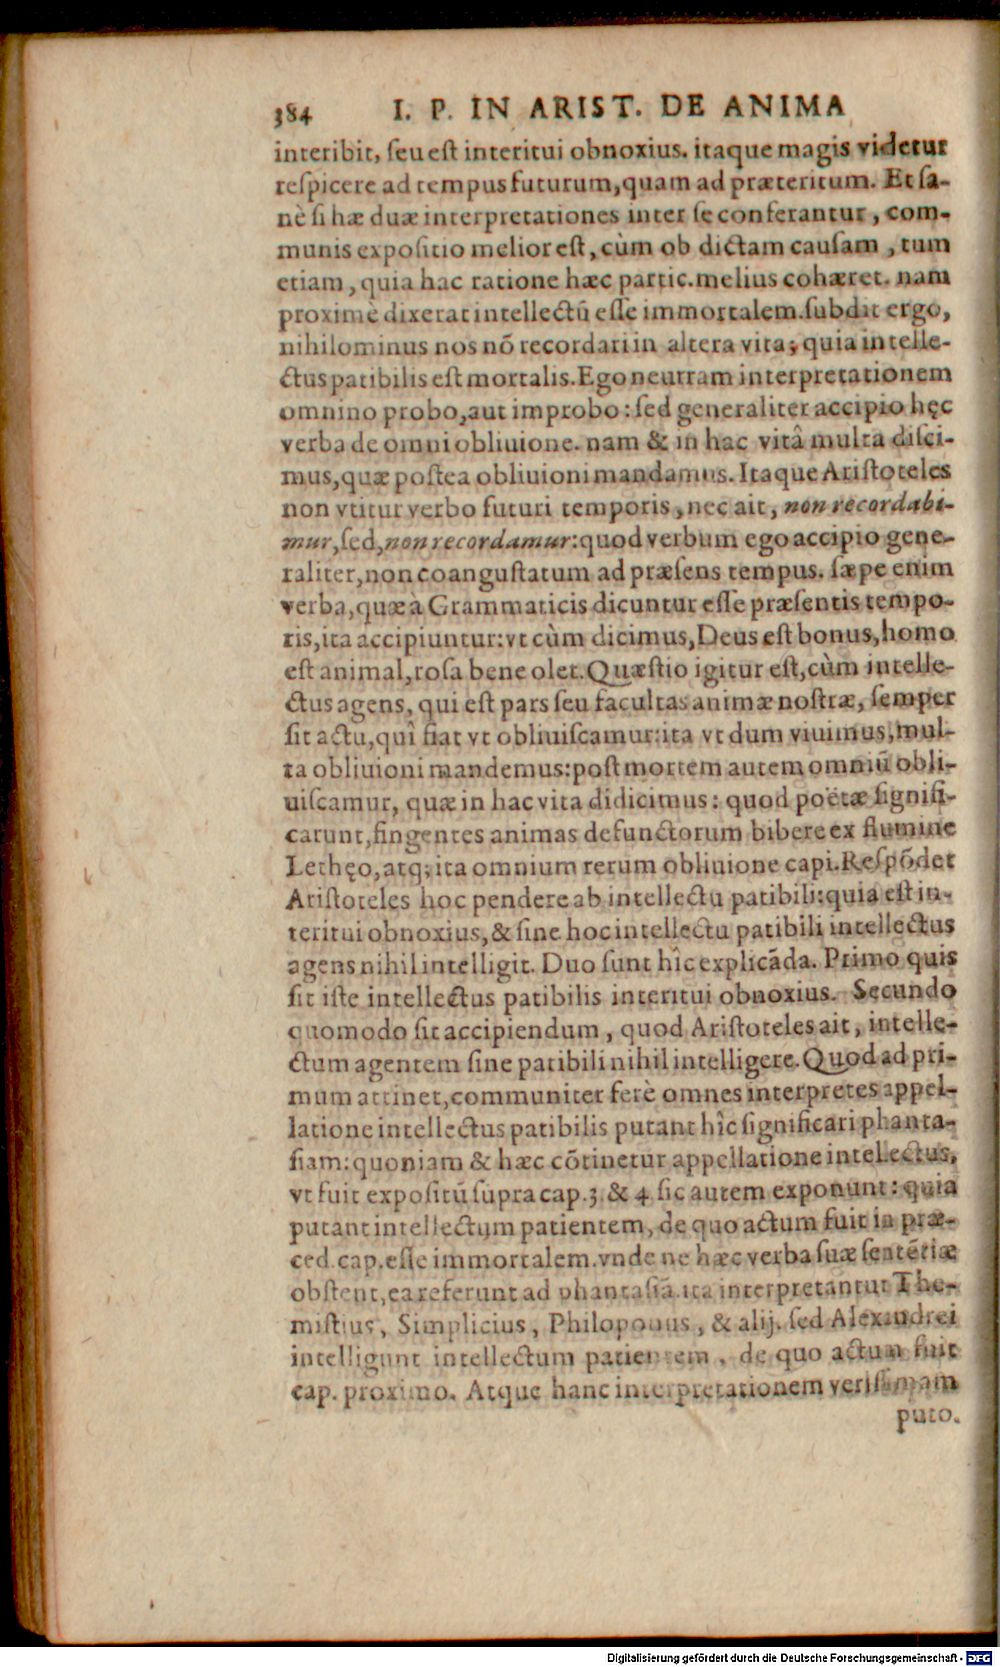 384 I. P. IN ARIST. DE ANIMA
interibit, ſeu eſt interitui obnoxius. itaque magis videtur
reſpicere ad tempus futurum, quam ad præteritum. Et ſa-
nè ſi hæ duæ interpretationes inter ſe conferantur, com-
munis expoſitio melior eſt, cùm ob dictam cauſam, tum
etiam, quia hac ratione hæc partic. melius cohæret. nam
proximè dixerat intellectũ eſſe immortalem. ſubdit ergo,
nihilominus nos nõ recordari in altera vita, quia intelle-
ctus patibilis eſt mortalis. Ego neutram interpretationem
omnino probo, aut improbo: ſed generaliter accipio hęc
verba de omni obliuione. nam & in hac vitâ multa diſci-
mus, quæ poſtea obliuioni mandamus. Itaque Ariſtoteles
non vtitur verbo futuri temporis, nec ait, non recordabi-
mur, ſed, non recordamur: quod verbum ego accipio gene-
raliter, non coanguſtatum ad præſens tempus. ſæpe enim
verba, quæ à Grammaticis dicuntur eſſe præſentis tempo-
ris, ita accipiuntur: vt cùm dicimus, Deus eſt bonus, homo
eſt animal, roſa bene olet. Quæſtio igitur eſt, cùm intelle-
ctus agens, qui eſt pars ſeu facultas animæ noſtræ, ſemper
ſit actu, quî fiat vt obliuiſcamur: ita vt dum viuimus, mul-
ta obliuioni mandemus: poſt mortem autem omniũ obli-
uiſcamur, quæ in hac vita didicimus: quod poëtæ ſignifi-
carunt, fingentes animas defunctorum bibere ex flumine
Lethęo, atq; ita omnium rerum obliuione capi. Reſpõdet
Ariſtoteles hoc pendere ab intellectu patibili: quia eſt in-
teritui obnoxius, & ſine hoc intellectu patibili intellectus
agens nihil intelligit. Duo ſunt hîc explicãda. Primo quis
ſit iſte intellectus patibilis interitui obnoxius. Secundo
quomodo ſit accipiendum, quod Ariſtoteles ait, intelle-
ctum agentem ſine patibili nihil intelligere. Quod ad pri-
mum attinet, communiter ferè omnes interpretes appel-
latione intellectus patibilis putant hîc ſignificari phanta-
ſiam: quoniam & hæc cõtinetur appellatione intellectus,
vt fuit expoſitũ ſupra cap. 3. & 4 ſic autem exponunt: quia
putant intellectum patientem, de quo actum fuit in præ-
ced. cap. eſſe immortalem. vnde ne hæc verba ſuæ ſentẽtiæ
obſtent, ea referunt ad phantaſiã. ita interpretantur The-
miſtius, Simplicius, Philoponus, & alij. ſed Alexandrei
intelligunt intellectum patientem, de quo actum fuit
cap. proximo. Atque hanc interpretationem veriſſimam
puto.
Digitalisierung gefördert durch die Deutsche Forschungsgemeinschaft - DFG